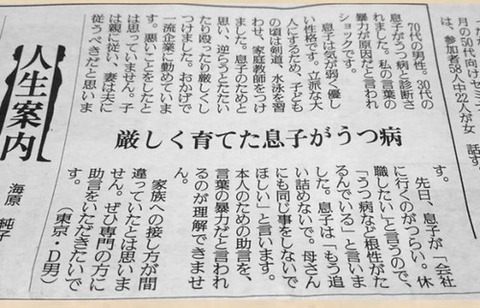 つたか
月の50代向けセミ
は、参加者58人中22人が女
話す。
人生案内
海原 純子
厳しく育てた息子がうつ病
70代の男性。30代の
息子がうつ病と診断さ
れました。私の言葉の
暴力が原因だと言われ
ショックです。
息子は気が弱く優し
い性格です。立派な大
人にするため、子ども
の頃は剣道、水泳を習
わせ、家庭教師をつけ
ました。息子のためと
思い、逆らうとたたい
たり殴ったり厳しくし
つけました。おかげで
一流企業に勤めていま
す。悪いことをしたと
は思っていません。子
は親に従い、妻は夫に
従うべきだと思いま
す。
先日、息子が「会社
に行くのがつらい。休
職したい」と言うので、
「うつ病など根性がた
るんでいる」と言いま
した。息子は「もう追
い詰めないで。母さん
にも同じ事をしないで
ほしい」と言います。
本人のための助言を、
言葉の暴力だと言われ
るのが理解できませ
ん。
家族への接し方が間
違っていたとは思いま
せん。ぜひ専門の方に
助言をいただきたいで
す。
（東京・D男）